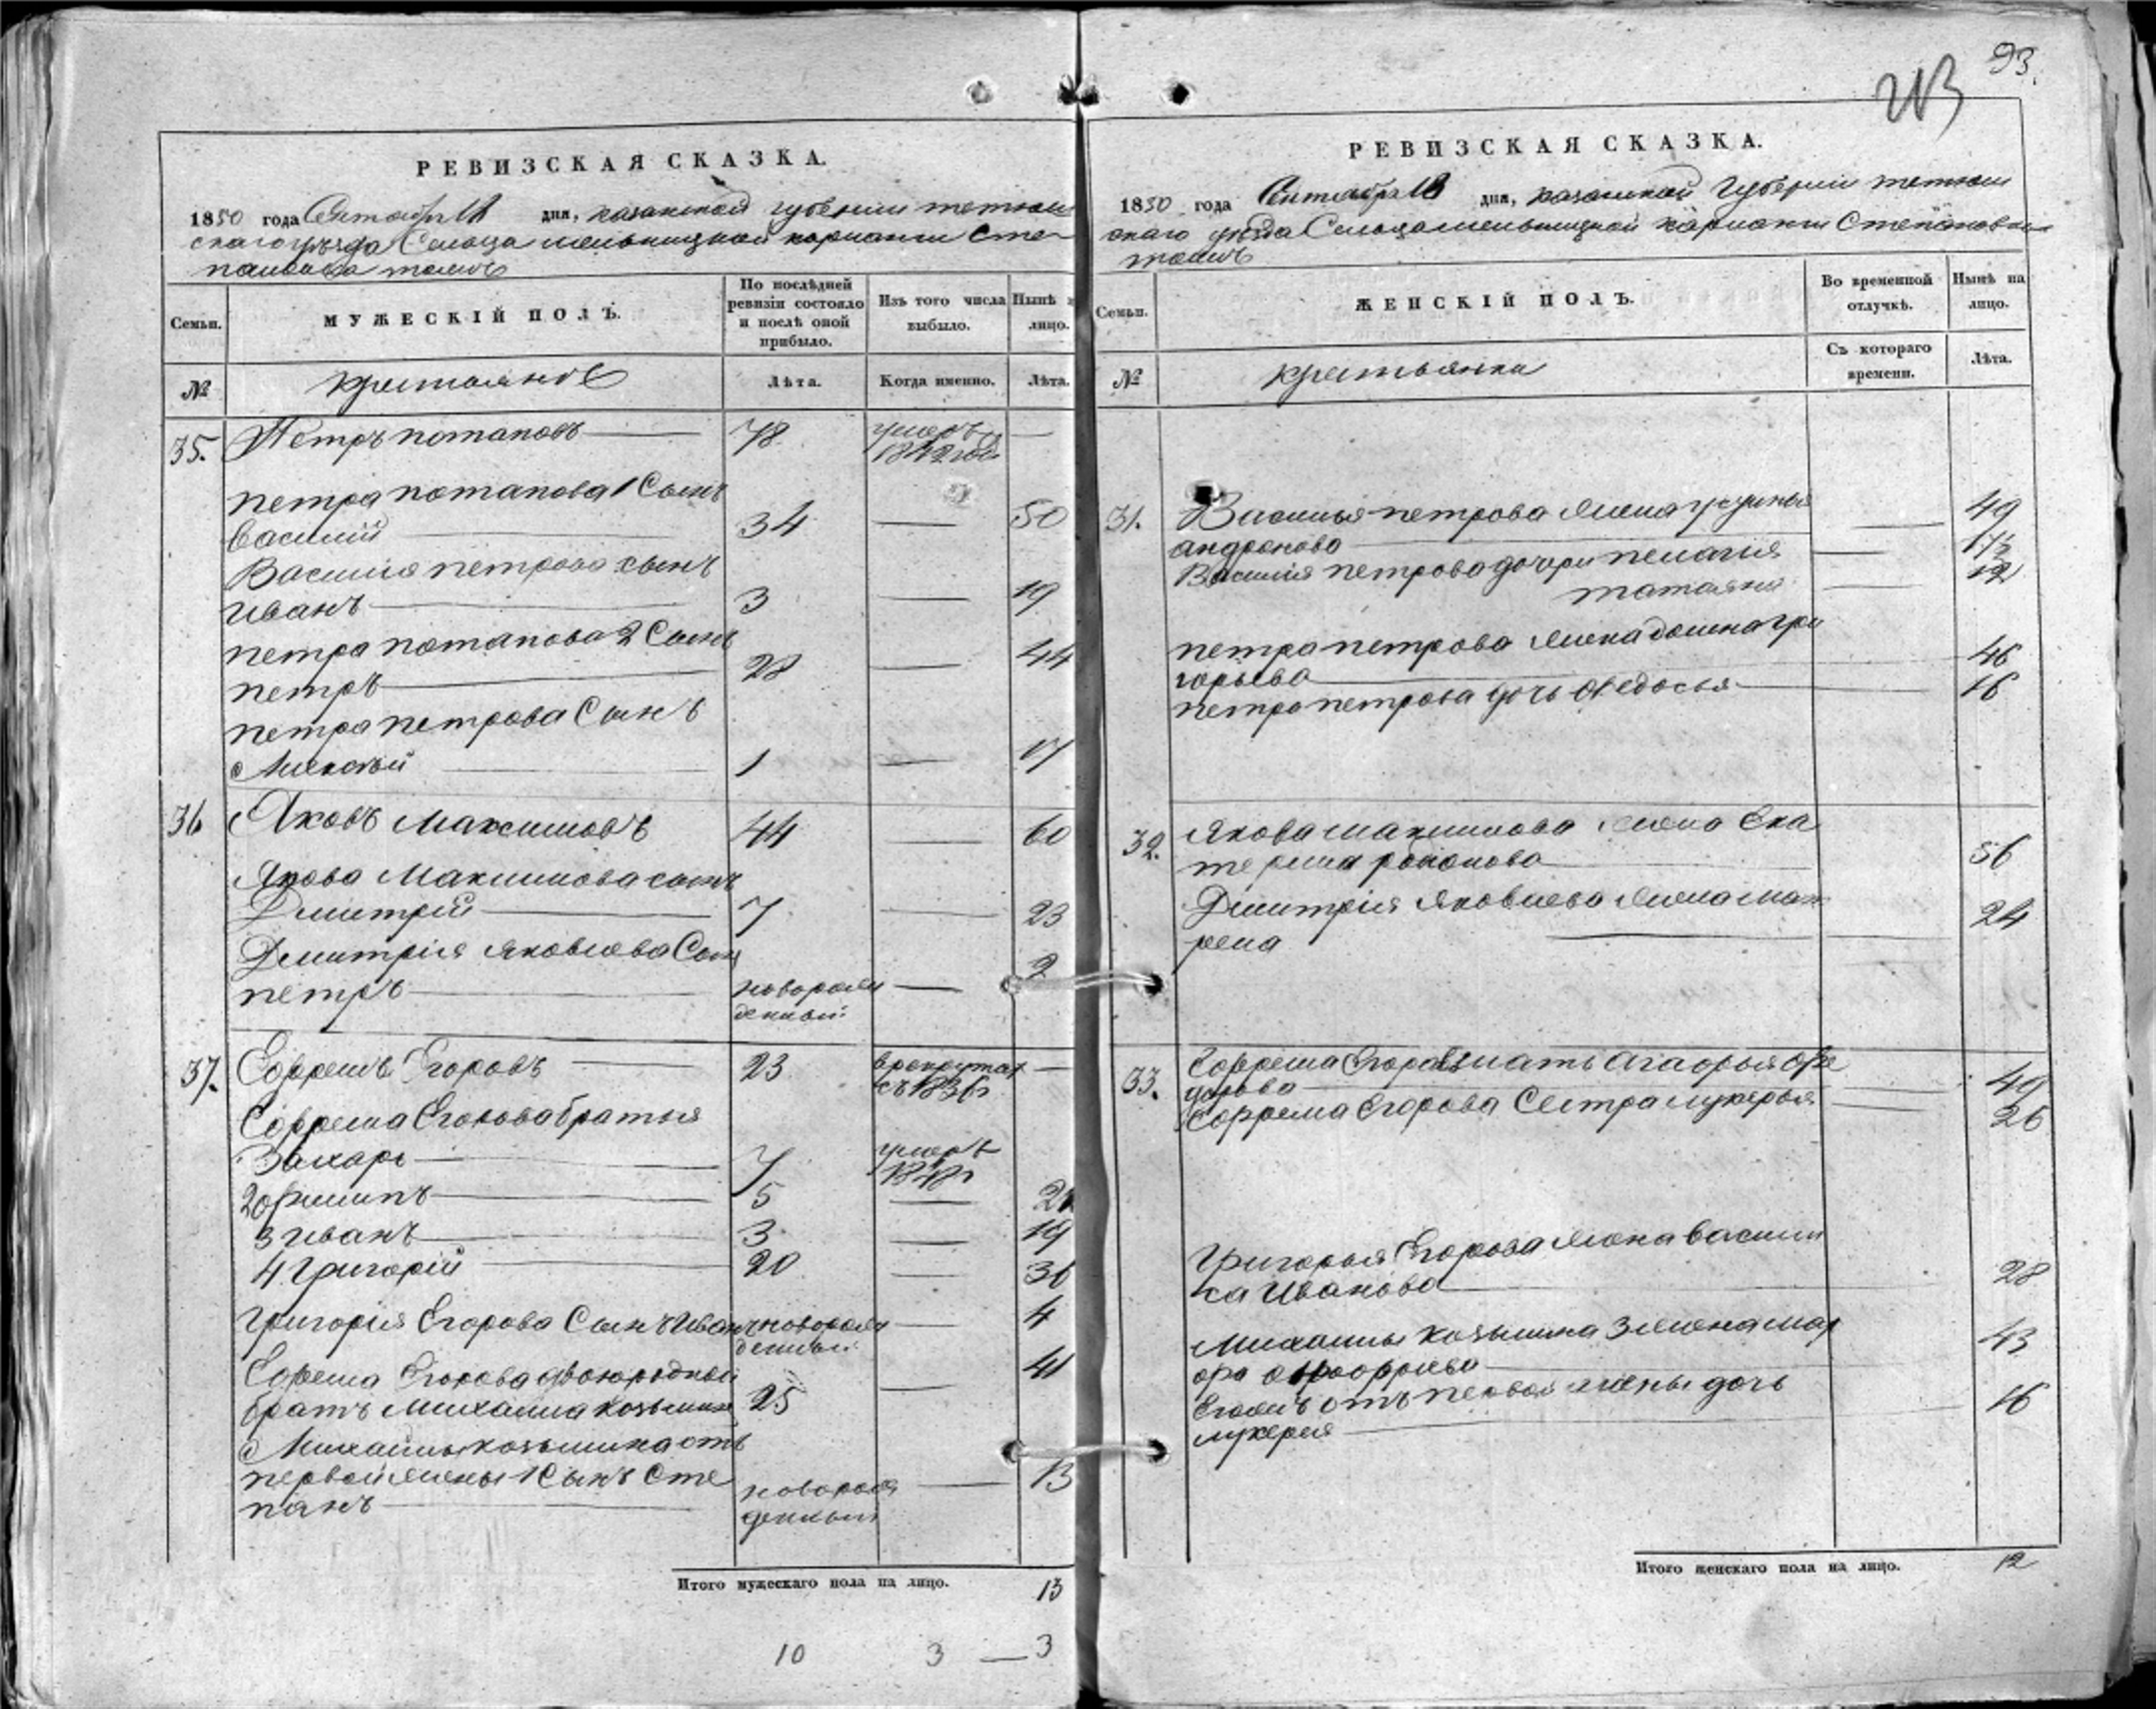 93.
213
РЕВИЗСКАЯ СКАЗКА.
1850 года Сентября 18 дня, казанской губернии тетюш
скаго уезда Сельца мельницкой карманки Сте-
панова тожъ
Семьи.
МУЖЕСКІЙ ПОЛЪ.
По послѣдней ревизіи состояло и послѣ оной прибыло.
Изъ того числа выбыло.
Нынѣ лицо.
№
крестьяне
Лѣта.
Когда именно.
Лѣта.
35. Петръ потаповъ 78 умеръ —
1842 год
петра потапова 1 Сынъ
василий 34 — 50
Василия петрова сынъ
иванъ 3 — 19
петра потапова 2 Сынъ
петръ 28 — 44
петра петрова Сынъ
Алексѣй 1 — 17
36 Яковъ Максимовъ 44 — 60
Якова Максимова сынъ
Дмитрій 7 — 23
Дмитрія яковлева Сын 2
петръ новорож —
денный
37. Ефремъ Егоровъ 23 в рекрутах —
съ 1836
Ефрема Егорова братья
Захаръ 7 умеръ
184
2 филипъ 5 — 21
3 иванъ 3 — 19
4 Григорій 20 — 36
Григорія Егорова Сынъ Иванъ новорож — 4
денный
Ефрема Егорова двоюродный 41
братъ Михаила козьмин 25 —
Михаилы козьмина отъ
первой жены 1 Сынъ Сте
панъ новорож — 13
денный
Итого мужескаго пола на лицо. 13
10 3 — 3
РЕВИЗСКАЯ СКАЗКА.
1850 года Сентября 18 дня, казанской Губернии тетюш
скаго уезда Сельца мельницкой карманки Степановка
тожъ
Семьи.
ЖЕНСКІЙ ПОЛЪ.
Во временной отлучкѣ.
Нынѣ на лицо.
№
крестьянки
Съ котораго времени.
Лѣта.
31. Василья петрова жена устинья 49
андронова —
Василія петрова дочери пелагия —
татьяна — 12
петра петрова жена домна гри
горьева 46
петра петрова дочь Федосья 16
32. Якова максимова жена Ека
терина 56
Дмитрия Яковлева жена мат
рена 24
33. Ефрема Егорова мать Агафья Фе
дорова — 49
Ефрема Егорова Сестра лукерья — 26
Григорья Егорова жена васили
са Иванова 28
Михаилы козьмина 3 жена мар 43
фа
Егожъ отъ первой жены дочь 16
лукерья
Итого женскаго пола на лицо. 12